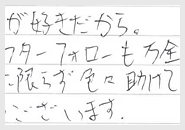 が好きだから。
フターフォローも万全
に限らず色々助けて
ございます.